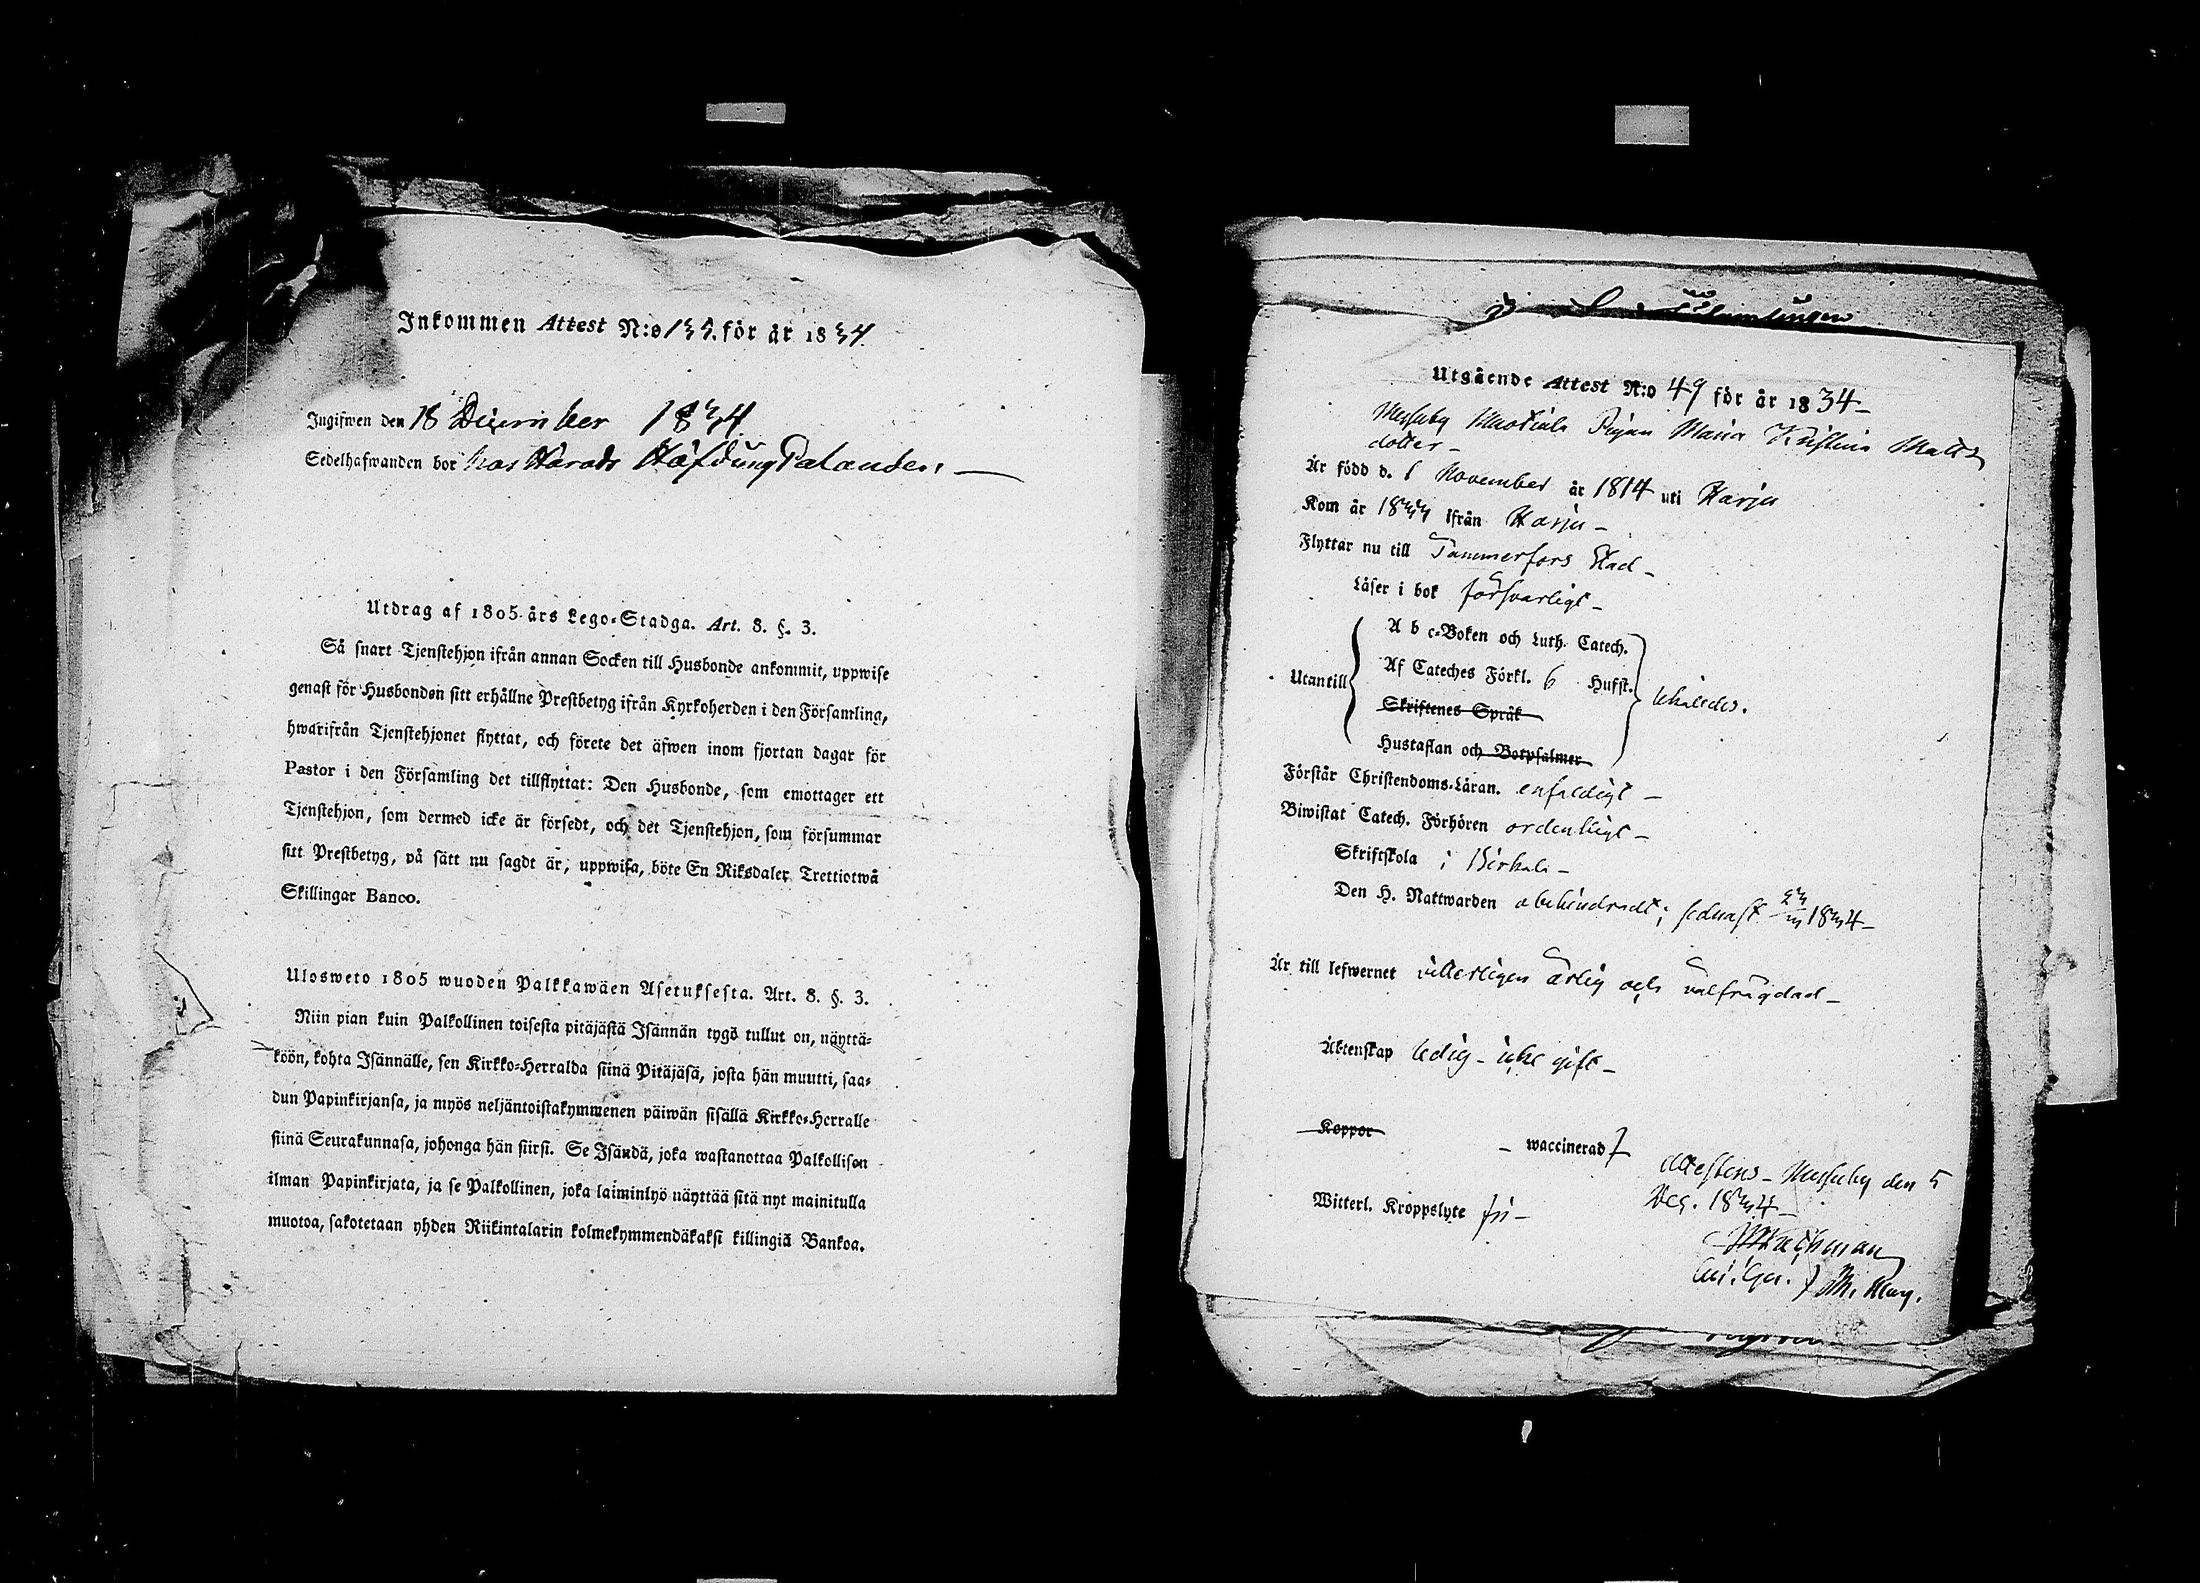 Inkommen Attest N:o 135. för år 1834.
Ingifwen den 18 December 1834.
Sedelhafwanden bor hos Härads Höfding Palander.
Utdrag af 1805 års Lego-Stadga. Art. 8. §. 3.
Så snart Tjenstehjon ifrån annan Socken till Husbonde ankommit, uppwise
genast för Husbonden sitt erhållne Prestbetyg ifrån Kyrkoherden i den Församling,
hwarifrån Tjenstehjonet flyttat, och förete det äfwen inom fjortan dagar för
Pastor i den Församling det tillflyttat: Den Husbonde, som emottager ett
Tjenstehjon, som dermed icke är försedt, och det Tjenstehjon, som försummar
sitt Prestbetyg, på sätt nu sagdt är, uppwisa, böte En Riksdaler Trettiotwå
Skillingar Banco.
Ulosweto 1805 wuoden Palkkawäen Asetuksesta. Art. 8. §. 3.
Niin pian kuin Palkollinen toisesta pitäjästä Isännän tygö tullut on, näyttä-
köön, kohta Isännälle, sen Kirkko-Herralda siinä Pitäjäsä, josta hän muutti, saa-
dun Papinkirjansa, ja myös neljäntoistakymmenen päiwän sisällä Kirkko-Herralle
siinä Seurakunnasa, johonga hän siirsi. Se Isändä, joka wastanottaa Palkollisen
ilman Papinkirjata, ja se Palkollinen, joka laiminlyö näyttää sitä nyt mainitulla
muotoa, sakotetaan yhden Riikintalarin kolmekymmendäkaksi killingiä Bankoa.
Utgående Attest N:o 49 för år 1834
Messuby Pigan Maria Kristina Matts
dotter
Är född d. 1 November år 1814 uti Harju
Kom år 1833 ifrån Harju
Flyttar nu till Tammerfors Stad
Läser i bok försvarligt
Utantill
A b c-Boken och Luth. Catech.
Af Cateches Förkl. 6 Hufst.
Skriftenes Språk
Hustaflan och Botpsalmer
Förstår Christendoms-Läran. enfaldigt
Biwistat Catech. Förhören ordentligt
Skriftskola i Birkala
Den H. Nattwarden obehindradt; sednast 1834
Är till lefwernet witterligen ärlig och välfrägdad
Äktenskap ledig - icke gift
Koppor - waccinerad
Witterl. Kroppslyte fri
attesteras - Messuby den 5
Dec. 1834